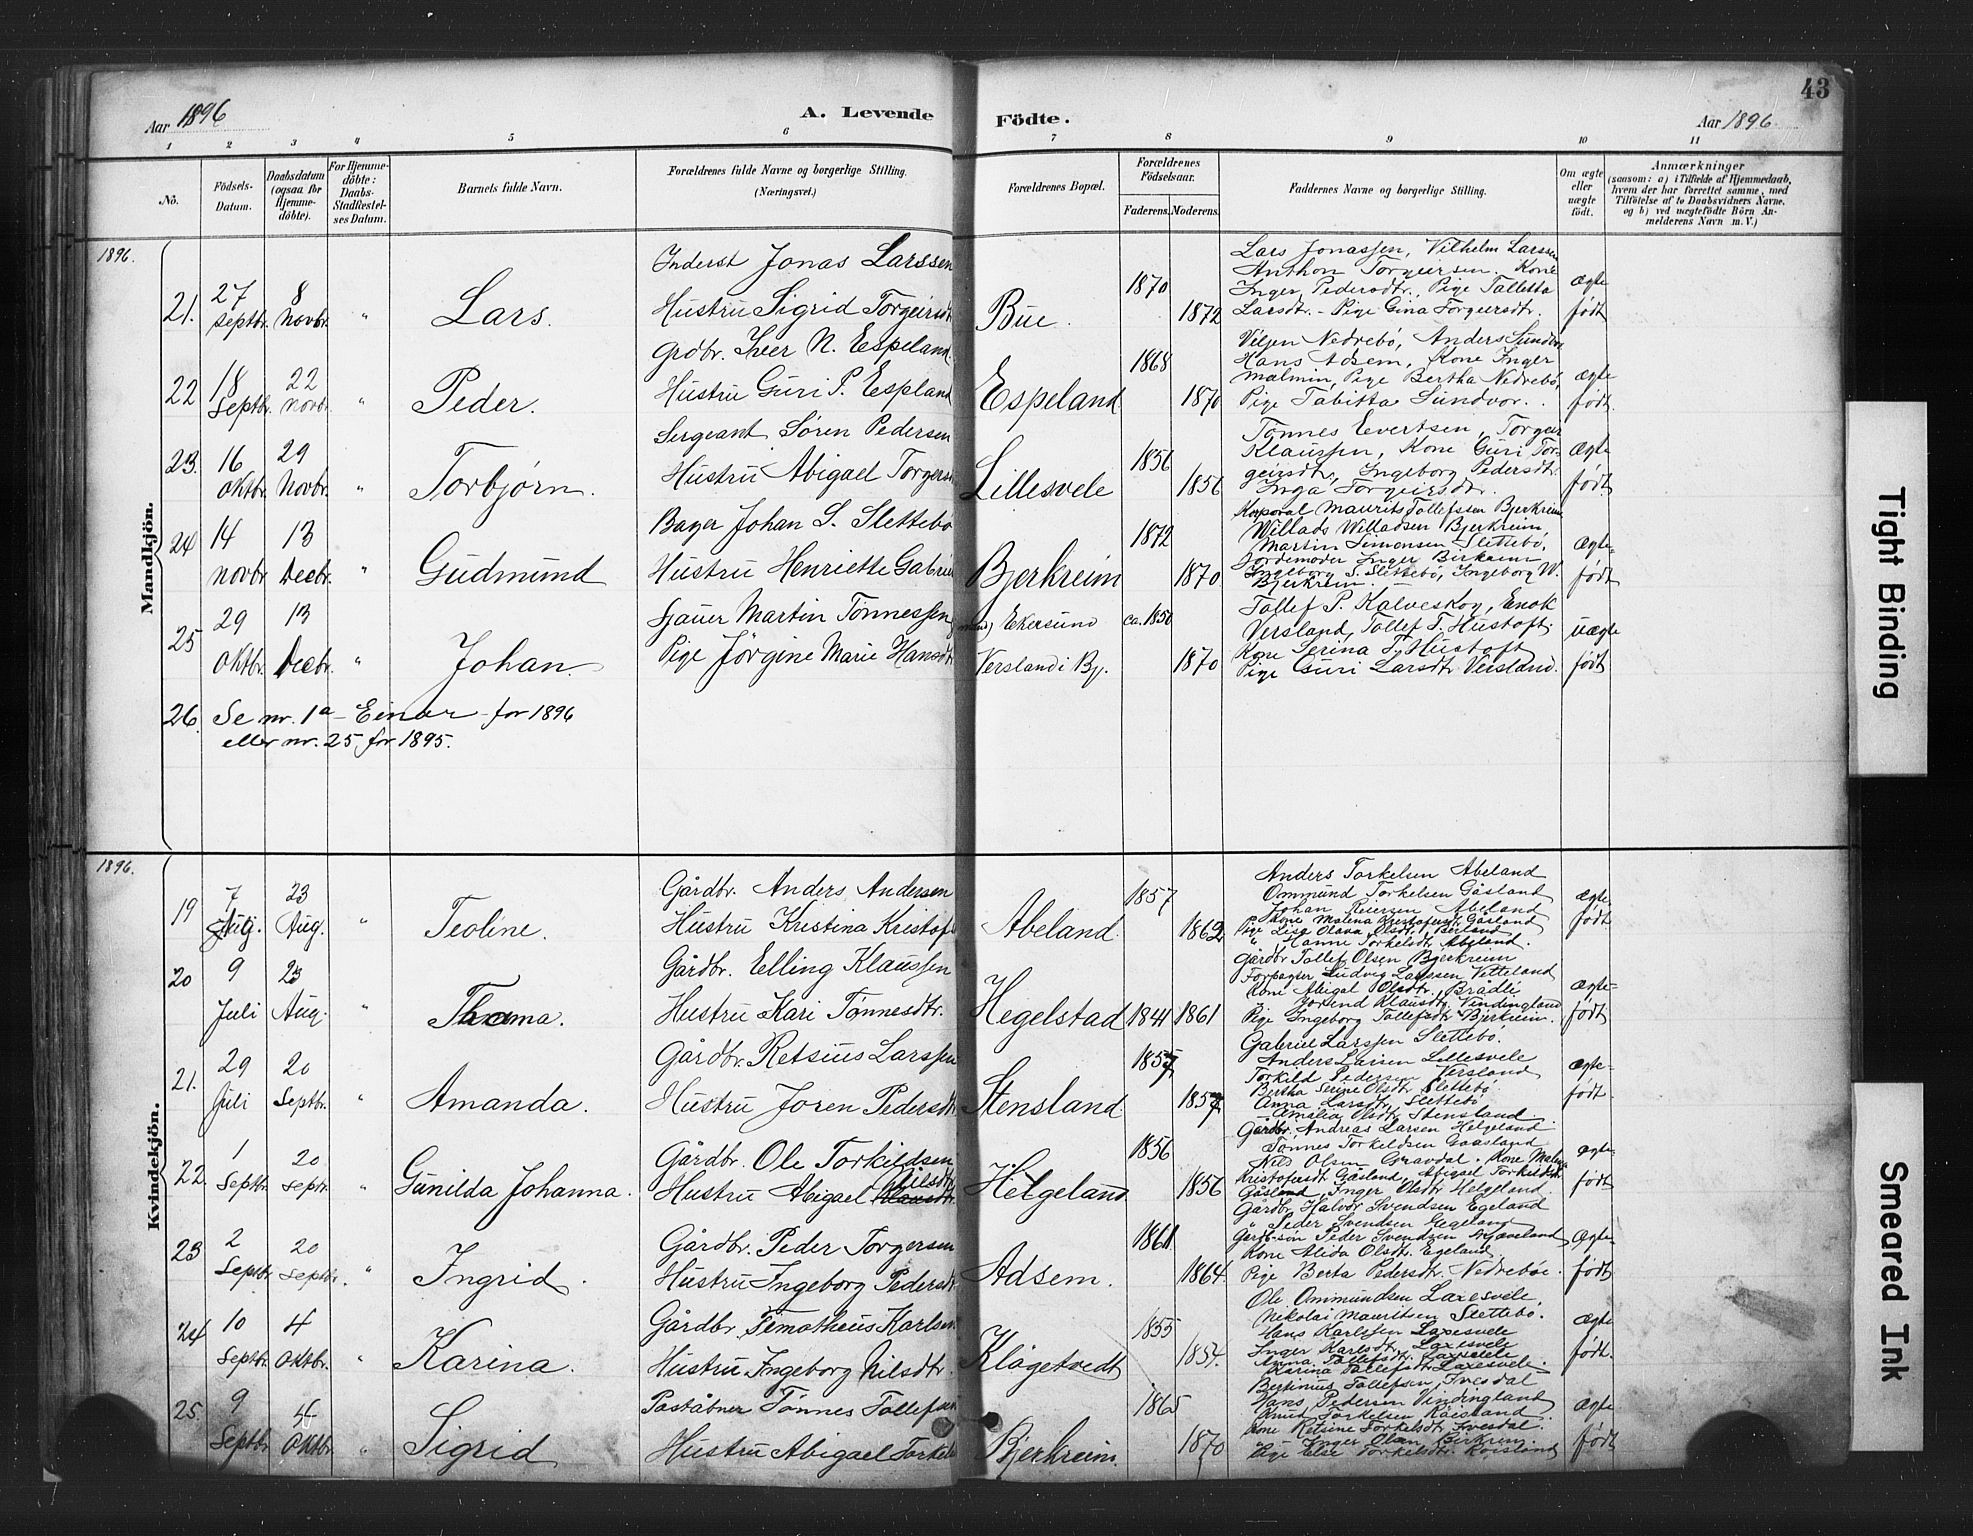 43
Aar 1896
A. Levende
Födte.
Aar 1896
1 2 3 4 5 6 7 8 9 10 11
No.
Födsels-
Datum.
Daabsdatum
(ogsaa for
Hjemme-
döbte).
For Hjemme-
döbte:
Daabs-
Stadfæstel-
ses Datum.
Barnets fulde Navn.
Forældrenes fulde Navne og borgerlige Stilling.
(Næringsvei.)
Forældrenes Bopæl.
Forældrenes
Födselsaar.
Faderens.
Moderens.
Faddernes Navne og borgerlige Stilling.
Om ægte
eller
uægte
födt.
Anmærkninger
(saasom: a) i Tilfælde af Hjemmedaab,
hvem der har forrettet samme, med
Tilföielse af to Daabsvidners Navne,
og b) ved uægtefödte Börn An-
melderens Navn m. V.)
Mandkjön.
1896.
21. 27 Septbr. 8 Novbr. " Lars.
Inderst Jonas Larssen
Hustru Sigrid Torgeirsdt
Bue. 1870 1872
Lars Jonassen, Vilhelm Larssen
Anthon Torgeirsen. Kone
Inger Pedersdtr., Pige Talletta
Larsdtr. - Pige Gina Torgeirsdtr.
ægte
født
22 18 Septbr. 22 Novbr. " Peder.
Grdbr. Iver N. Espeland
Hustru Guri P. Espland
Espeland 1868 1870
Nedrebö, Anders Sundvor
Hans Adsem, Kone Inger
Malmin, Pige Bertha Nedrebö,
Pige Tabitta Sundvor.
ægte
født.
23. 16 Oktbr. 29 Novbr. " Torbjørn.
Sergeant Sören Pedersen
Hustru Abigael Torgers
Lillesvele 1856 1856
Tønnes Evertsen, Torgeir
Klaussen, Kone Guri Tor-
geirsdtr, Ingeborg Pedersdtr.
Inga Torgeirsdtr.
ægte
født
24 14 Novbr. 13 Decbr. " Gudmund
Bager Johan S. Slettebö
Hustru Henriette Gabriel
Bjerkreim 1872 1870
Korporal Maurits Tollefsen Bjerkreim
Willads Willadsen Bjerkreim
Martin Simonsen Slettebö,
Jordemoder Inger Birkreim
Ingeborg S. Slettebö, Ingeborg W.
Bjerkreim.
ægte-
født
25 29 Oktbr. 13 Decbr. " Johan.
Sjauer Martin Tønnessen
Pige Jörgine Marie Hansdtr
Ekersund ca. 1850
Versland i Bj. 1870
Tollef P. Kalveskog, Enok
Versland, Tollef T. Hustoft,
Kone Serina T. Hustoft
Pige Guri Larsdtr. Versland.
uægte
født
26. Se nr. 1a - Einar - for 1896
eller nr. 25 for 1895.
Kvindekjön.
1896.
19 7 Aug. 23 Aug. " Teoline.
Gårdbr. Anders Andersen
Hustru Kristina Kristof
Abeland. 1857 1862
Anders Torkelsen Abeland
Ommund Torkelsen Gåsland
Johan Reiersen Abeland
Kone Malena Kristofersdtr. Gåsland
Pige Lise Olava Olsdtr. Birland
" Hanne Torkelsdtr. Abeland.
ægte
født
20 9 Juli 23 Aug. " Thoma.
Gårdbr. Elling Klaussen
Hustru Kari Tønnesdtr.
Hegelstad 1841 1861
Gårdbr Tollef Olsen Bjerkreim
Forpagter Ludvig Larssen Vetteland
Kone Abigal Olsdtr. Brådli
Jorend Klausdtr. Vindingland
Pige Ingeborg Tollefsdtr Bjerkreim.
ægte-
født
21. 29 Juli 20 Septbr. " Amanda.
Gårdbr. Retsius Larssen
Hustru Joren Pedersdtr
Stensland 1857 1857
Gabriel Larssen Slettebö.
Anders Larsen Lillesvele
Torkild Pedersen Versland
Bertha Serine Olsdtr. Slettebö
Anna Larsdtr. Slettebö
Amalia Olsdtr. Stensland.
ægte-
født.
22. 1 Septbr. 20 Septr. " Gunilda Johanna.
Gårdbr. Ole Torkildsen
Hustru Abigael Nilsdtr.
Helgeland 1856 1856
Gårdbr. Andreas Larsen Helgeland
Tønnes Torkildsen Gaasland
Nils Olsen Gravdal. Kone Malena
Kristofersdt Gåsland, Abigael Torkildsdtr
Gåsland, Inger Olsdtr. Helgeland.
ægte
født
23 2 Septbr 20 Septbr. " Ingrid.
Gårdbr. Peder Torgersen
Hustru Ingeborg Pedersdt
Adsem. 1861 1864
Gårdbr. Halvor Svendsen Egeland
" Peder Svendsen Eegeland
Gårdb-søn Peder Svendsen
Kone Alida Olsdtr. Egeland.
Pige Berta Pedersdtr. Nedreböe.
Ægte
født
24 10 Septbr. 4 Oktbr. " Karina.
Gårdbr. Timotheus Karlsen
Hustru Ingeborg Nilsdtr.
Klågetvedt 1855 1854.
Ole Ommundsen Laxesvele.
Nikolai Mauritsen Slettebö.
Hans Karlssen Laxesvele
Inger Karlsdtr. Laxesvele
Anna Tollefsdtr. Laxesvele
Karina Tollefsdtr. Laxesvele.
ægte
født.
25. 9 Septbr. 4 Oktbr. " Sigrid
Poståbner Tønnes Tollefsen
Hustru Abigael Torkels
Bjerkreim. 1865 1870
Bertinius Tollefsen Ivesdal
Hans Pedersen Vindingland
Knud Torkelsen Røisland
Kone Retsine Torkelsdtr. Ivesdal.
" Inger Olsen Birkreim.
Pige Else Torkelsdtr. Røisland
ægte
født
Tight Binding
Smeared Ink